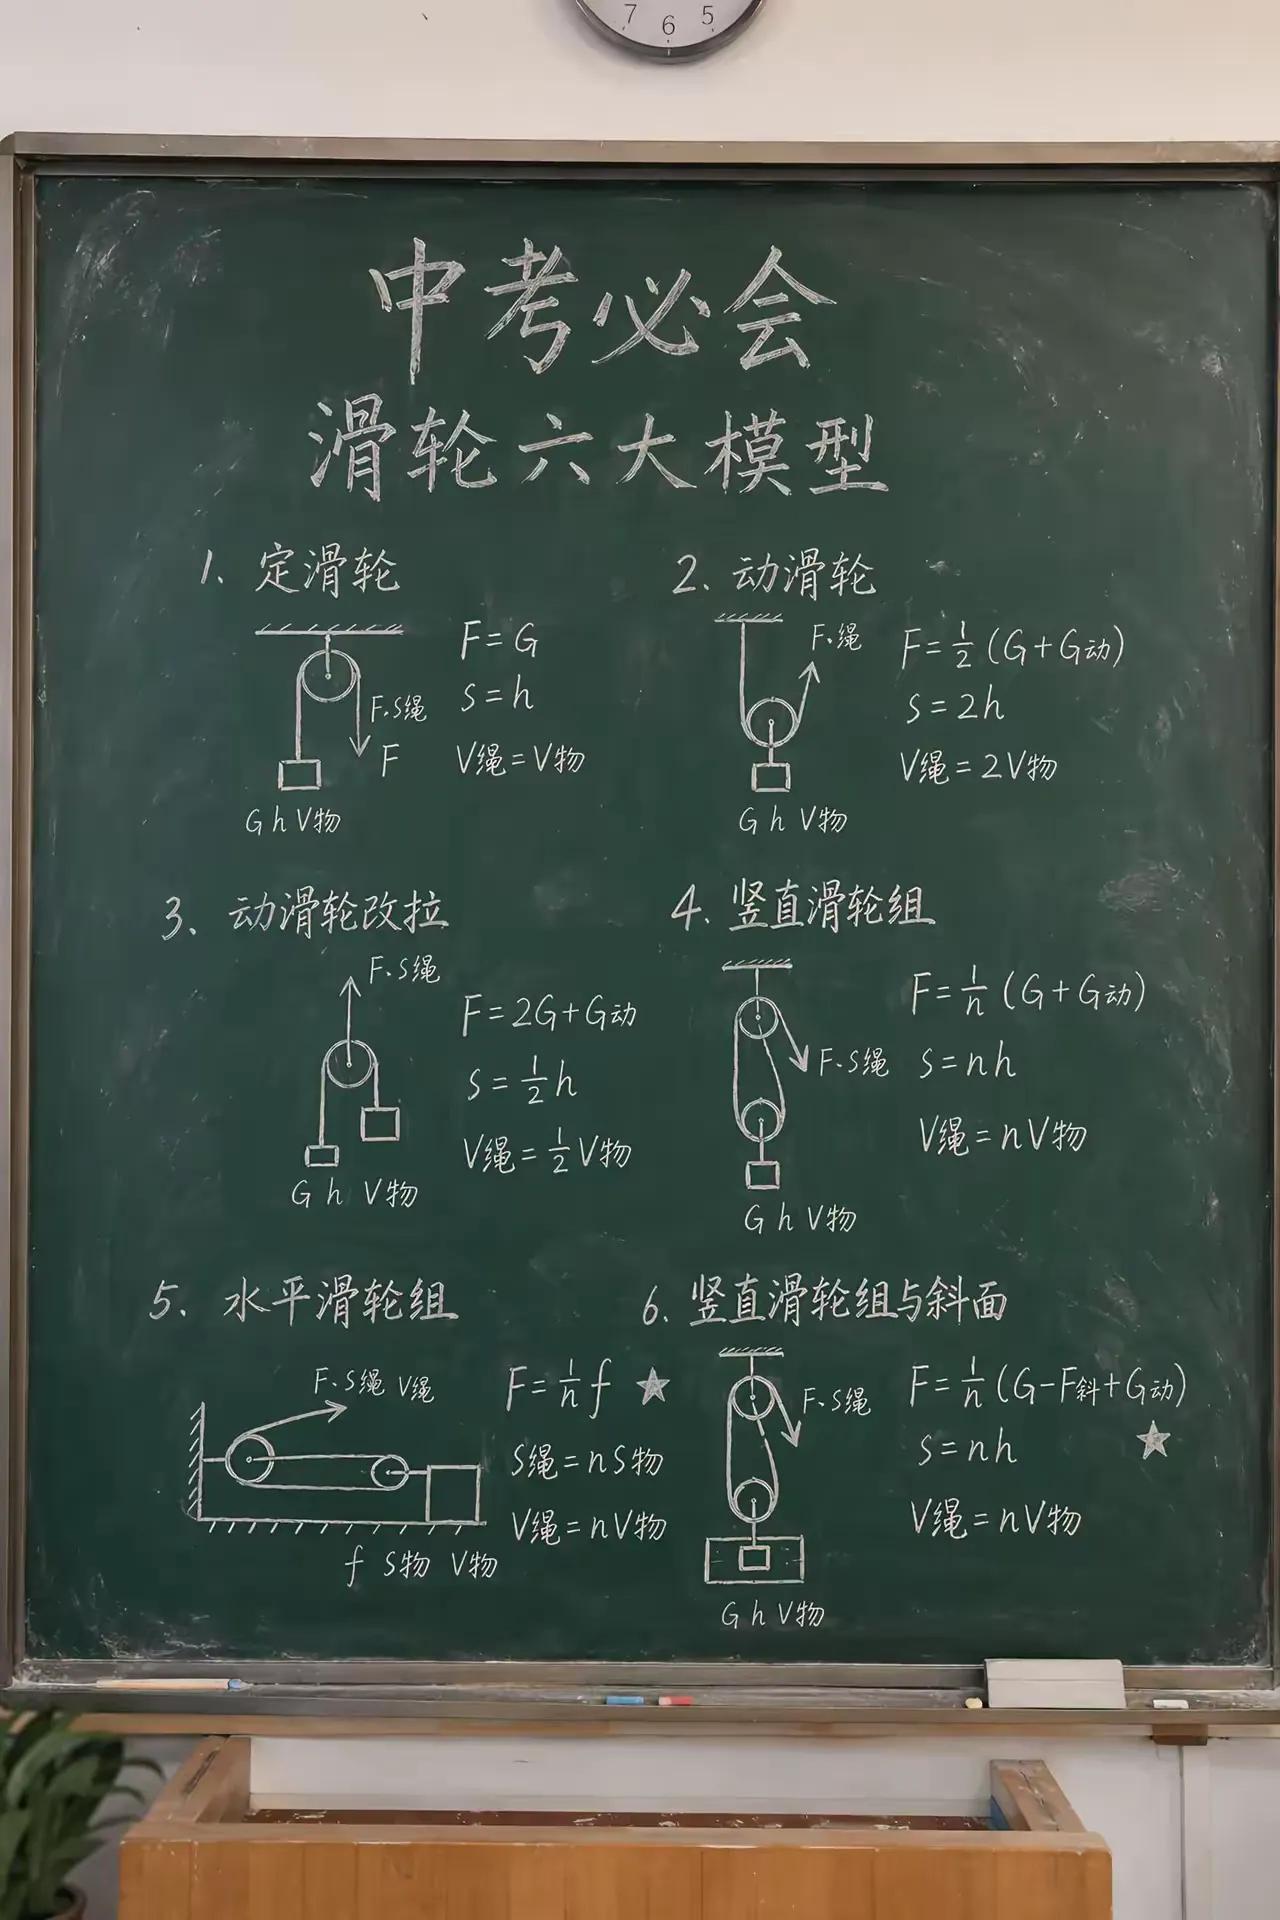 7 6 5
中考必会
滑轮六大模型
1、定滑轮
F=G
s=h
V绳=V物
F、S绳
F
G h V物
2、动滑轮
F、绳
F=1/2(G+G动)
s=2h
V绳=2V物
G h V物
3、动滑轮改拉
F、S绳
F=2G+G动
s=1/2h
V绳=1/2V物
G h V物
4、竖直滑轮组
F=1/n(G+G动)
F、S绳
s=nh
V绳=nV物
G h V物
5、水平滑轮组
F、S绳 V绳
F=1/n f ★
S绳=nS物
V绳=nV物
f S物 V物
6、竖直滑轮组与斜面
F、S绳
F=1/n(G-F斜+G动)
s=nh ★
V绳=nV物
G h V物